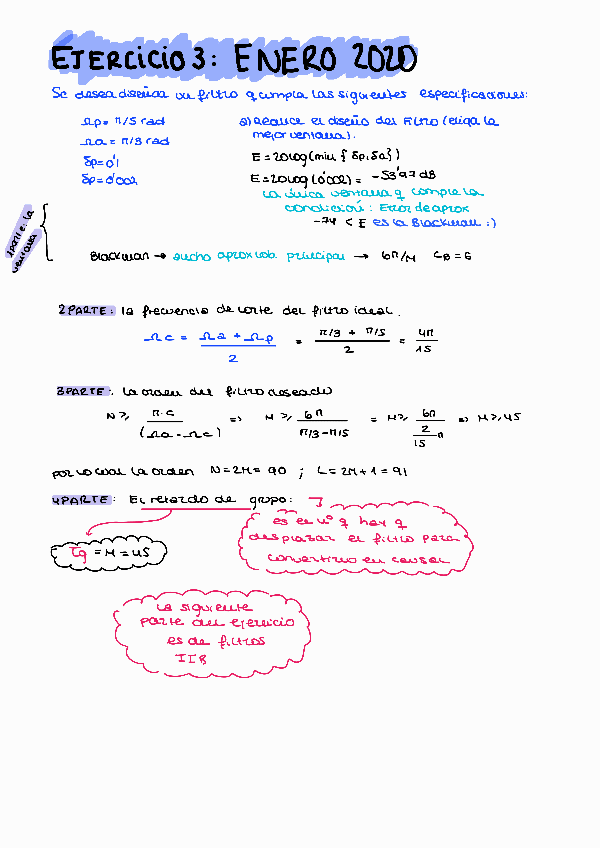 EJERCICIO 3: ENERO 2020
Se desea diseñar un filtro q cumpla las siguientes especificaciones:
Ωp = π/5 rad
Ωa = π/3 rad
δp = 0'1
δp = 0'002
a) Realice el diseño del Filtro (elija la
mejor ventana).
E = 20log(min{δp,δa})
E = 20log(0'002) = -53'97 dB
La única ventana q cumple la
condición: Error de aprox
-74 < E es la Blackman :)
1 PARTE: la
ventana
Blackman → ancho aprox lob. principal → 6π/M CB = 6
2 PARTE: la frecuencia de corte del filtro ideal.
Ωc = Ωa + Ωp / 2 = π/3 + π/5 / 2 = 4π / 15
3 PARTE: La orden del filtro deseado
M ≥ π·c / (Ωa - Ωc) => M ≥ 6π / π/3 - π/5 = M ≥ 6π / 2/15 π => M ≥ 45
por lo cual la orden N = 2M = 90 ; L = 2M + 1 = 91
4 PARTE: El retardo de grupo:
es el nº q hay q
desplazar el filtro para
convertirlo en causal
τg = M = 45
La siguiente
parte del ejercicio
es de filtros
IIR